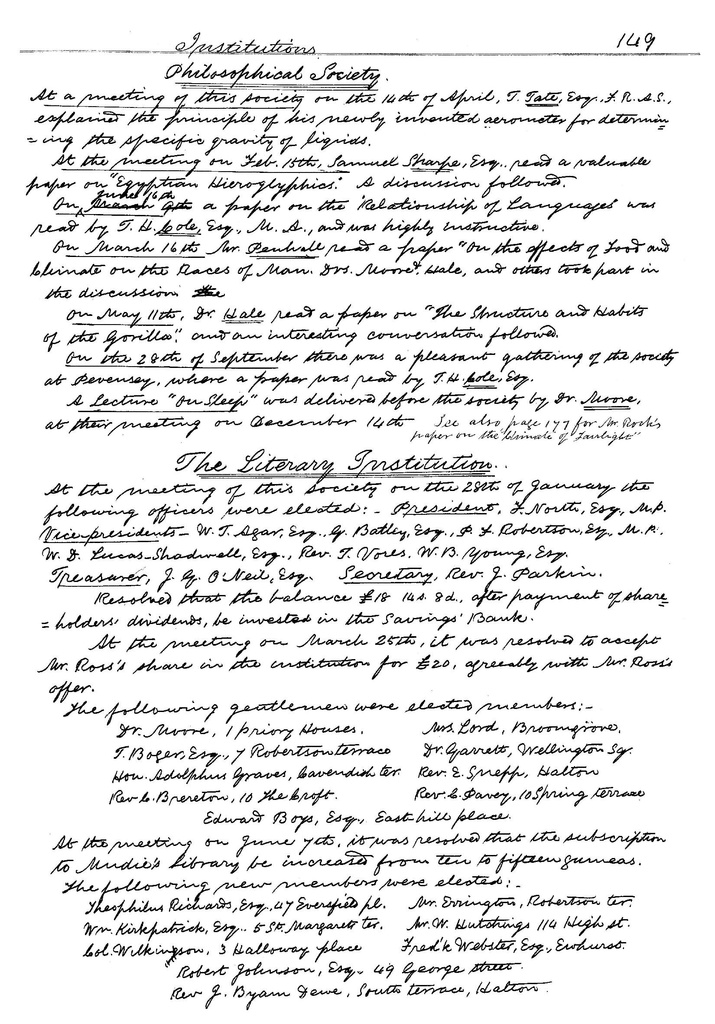 Institutions 149
Philosophical Society.
At a meeting of this society on the 14th of April, T. Tate, Esq., F.R.A.S.,
explained the principle of his newly invented aerometer for determin=
=ing the specific gravity of liquids.
At the meeting on Feb. 15th, Samuel Sharpe, Esq. read a valuable
paper on "Egyptian Hieroglyphics." A discussion followed.
June 16th
On March 9th a paper on the Relationship of Languages was
read by T. H. Cole, Esq., M.A., and was highly instructive.
On March 16th Mr. Penhall read a paper "On the effects of Food and
Climate on the Races of Man. Drs. Moore & Hale, and others took part in
the discussion the
On May 11th, Dr. Hale read a paper on "The Structure and Habits
of the Gorilla", and an interesting conversation followed.
On the 28th of September there was a pleasant gathering of the society
at Pevensey, where a paper was read by T.H. Cole, Esq.
A Lecture "On Sleep" was delivered before the society by Dr. Moore,
at their meeting on December 14th See also page 177 for Mr. Rock's
paper on the "Climate of Fairlight"
The Literary Institution.
At the meeting of this society on the 28th of January the
following officers were elected:- President, F. North, Esq., M.P.
Vice-presidents- W. T. Agar, Esq., G. Batley, Esq., P. F. Robertson, Esq., M.P.,
W. D. Lucas-Shadwell, Esq., Rev. T. Vores, W. B. Young, Esq.
Treasurer, J. G. O'Neil, Esq. Secretary, Rev. J. Parkin.
Resolved that the balance £18 14s. 8d., after payment of share=
=holders' dividends, be invested in the Savings' Bank.
At the meeting on March 25th, it was resolved to accept
Mr. Ross's share in the institution for £20, agreeably with Mr. Ross's
offer.
The following gentlemen were elected members:-
Dr. Moore, 1 Priory Houses. Mrs. Lord, Broomgrove.
T. Boger, Esq., 7 Robertson terrace Dr. Garrett, Wellington Sq.
Hon. Adolphus Graves, Cavendish ter. Rev. E. Sneff, Halton
Rev. C. Brereton, 10 The Croft. Rev. C. Pavey, 10 Spring terrace
Edward Boys, Esq., East hill place.
At the meeting on June 7th, it was resolved that the subscription
to Mudie's Library be increased from ten to fifteen guineas.
The following new members were elected:-
Theophilus Richards, Esq., 47 Eversfield pl. Mr. Errington, Robertson ter.
Wm. Kirkpatrick, Esq. 5 St. Margarets ter. Mr. W. Hutchings 114 High st.
Col. Wilkinson, 3 Halloway place Fred'k Webster, Esq., Ewhurst.
Robert Johnson, Esq. 49 George street.
Rev. J. Byam Dewe, South terrace, Halton.